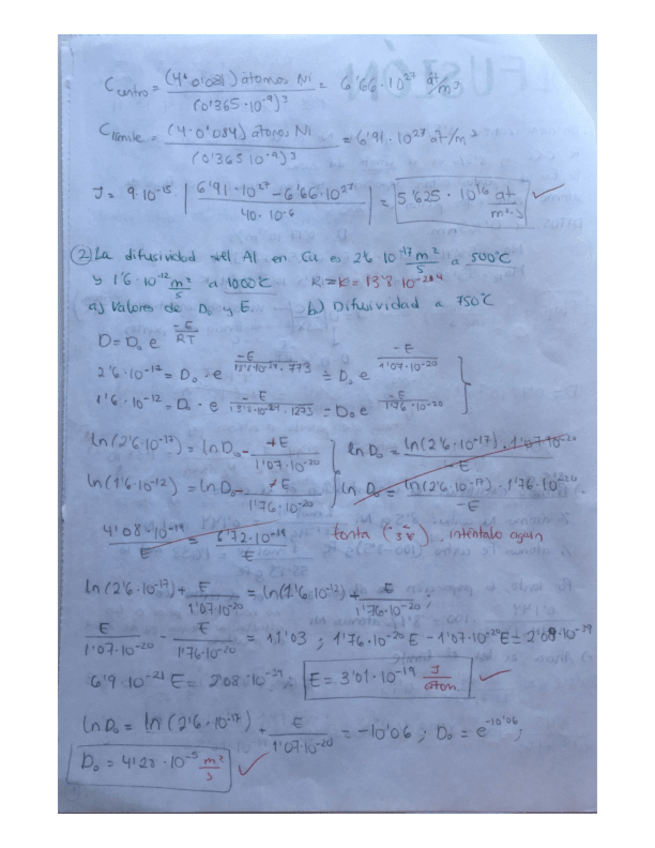 C centro = (4·0'081) átomos Ni / (0'365·10⁻⁹)³ = 6'66·10²⁷ át/m³
C límite = (4·0'084) átonos Ni / (0'365 10⁻⁹)³ = 6'91·10²⁷ at/m³
J = 9·10⁻¹⁵ · | 6'91·10²⁷ - 6'66·10²⁷ / 40·10⁻⁶ | = 5'625·10¹⁶ at / m²·s ✓
② La difusividad del Al en Cu es 2'6·10⁻¹⁷ m²/s a 500ºC
y 1'6·10⁻¹² m²/s a 1000ºC R = K = 13'8·10⁻²⁴
a) Valores de D₀ y E. b) Difusividad a 750ºC
D = D₀ e^(-E/RT)
2'6·10⁻¹² = D₀ · e^(-E / 13'8·10⁻²⁴·773) = D₀ e^(-E / 1'07·10⁻²⁰)
1'6·10⁻¹² = D₀ · e^(-E / 13'8·10⁻²⁴·1273) = D₀ e^(-E / 1'76·10⁻²⁰)
ln(2'6·10⁻¹⁷) = ln D₀ - +E / 1'07·10⁻²⁰ ln D₀ = ln(2'6·10⁻¹⁷)·1'07·10⁻²⁰ / -E
ln(1'6·10⁻¹²) = ln D₀ - +E / 1'76·10⁻²⁰ ln D₀ = ln(2'6·10⁻¹⁷)·1'76·10⁻²⁰ / -E
4'08·10⁻¹⁹ / E = 6'72·10⁻¹⁹ / E tonta , inténtalo again
ln(2'6·10⁻¹⁷) + E / 1'07·10⁻²⁰ = ln(1'6·10⁻¹²) + E / 1'76·10⁻²⁰ ;
E / 1'07·10⁻²⁰ - E / 1'76·10⁻²⁰ = 11'03 ; 1'76·10⁻²⁰ E - 1'07·10⁻²⁰ E = 2'08·10⁻³⁹
6'9·10⁻²¹ E = 2'08·10⁻³⁹ ; E = 3'01·10⁻¹⁹ J / atom. ✓
ln D₀ = ln(2'6·10⁻¹⁷) + E / 1'07·10⁻²⁰ = -10'06 ; D₀ = e^(-10'06) ;
D₀ = 4'28·10⁻⁵ m²/s ✓